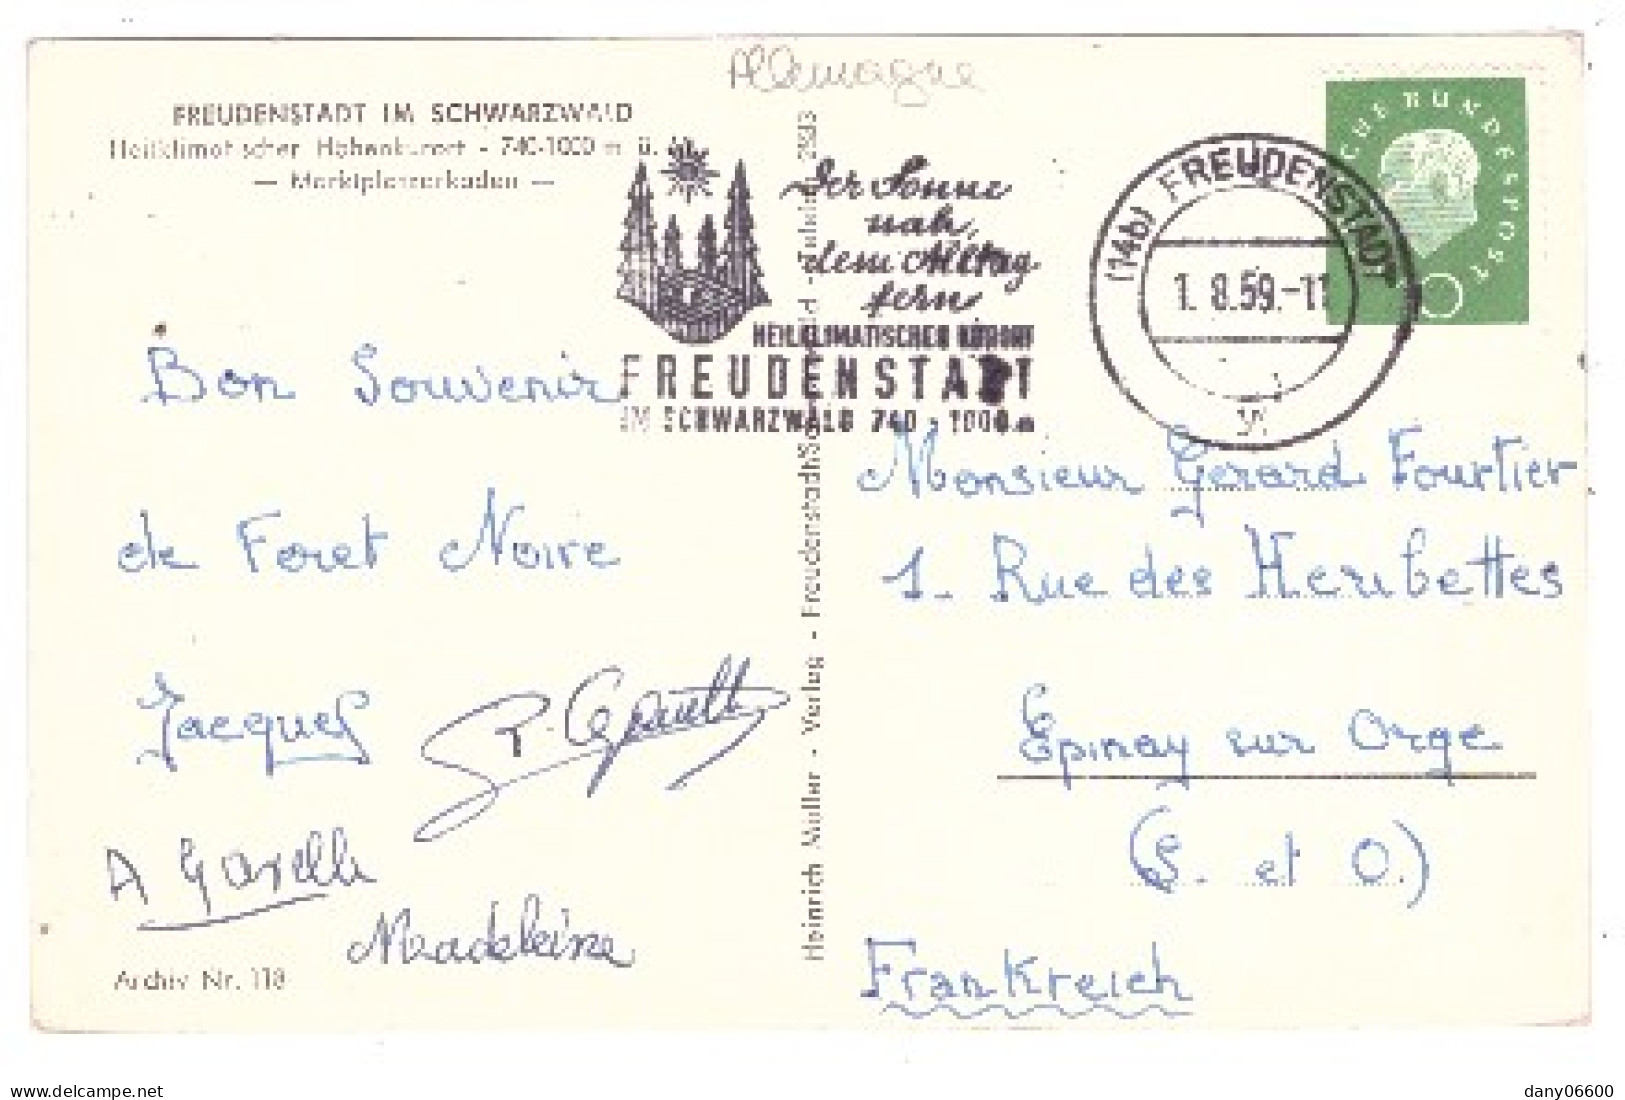 Allemagne
FREUDENSTADT IM SCHWARZWALD
Heilklimatischer Höhenkurort - 740-1000 m ü. M.
— Marktplatzarkaden —
Der Sonne
nah,
dem Alltag
fern
HEILKLIMATISCHER KURORT
FREUDENSTADT
IM SCHWARZWALD 740 - 1000 m
(14b) FREUDENSTADT
1. 8.59.-11
DEUTSCHE BUNDESPOST
Bon Souvenir
de Foret Noire
Jacques
A
Madeleine
Archiv Nr. 118
Heinrich Müller - Verlag - Freudenstadt/Schwarzwald
Monsieur Gerard Fourtier
1. Rue des Heribettes
Epinay sur Orge
(S. et O.)
Frankreich
www.delcampe.net
dany06600